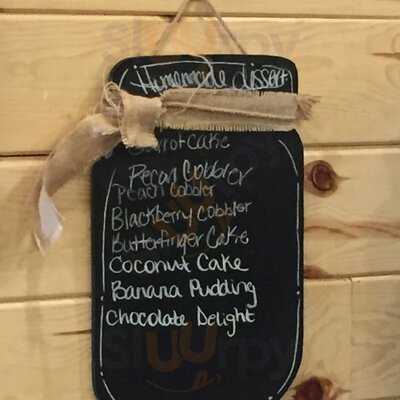 Homemade dissert
Carrot Cake
Pecan Cobbler
Peach Cobbler
Blackberry Cobbler
Butterfinger Cake
Coconut Cake
Banana Pudding
Chocolate Delight
sluurpy